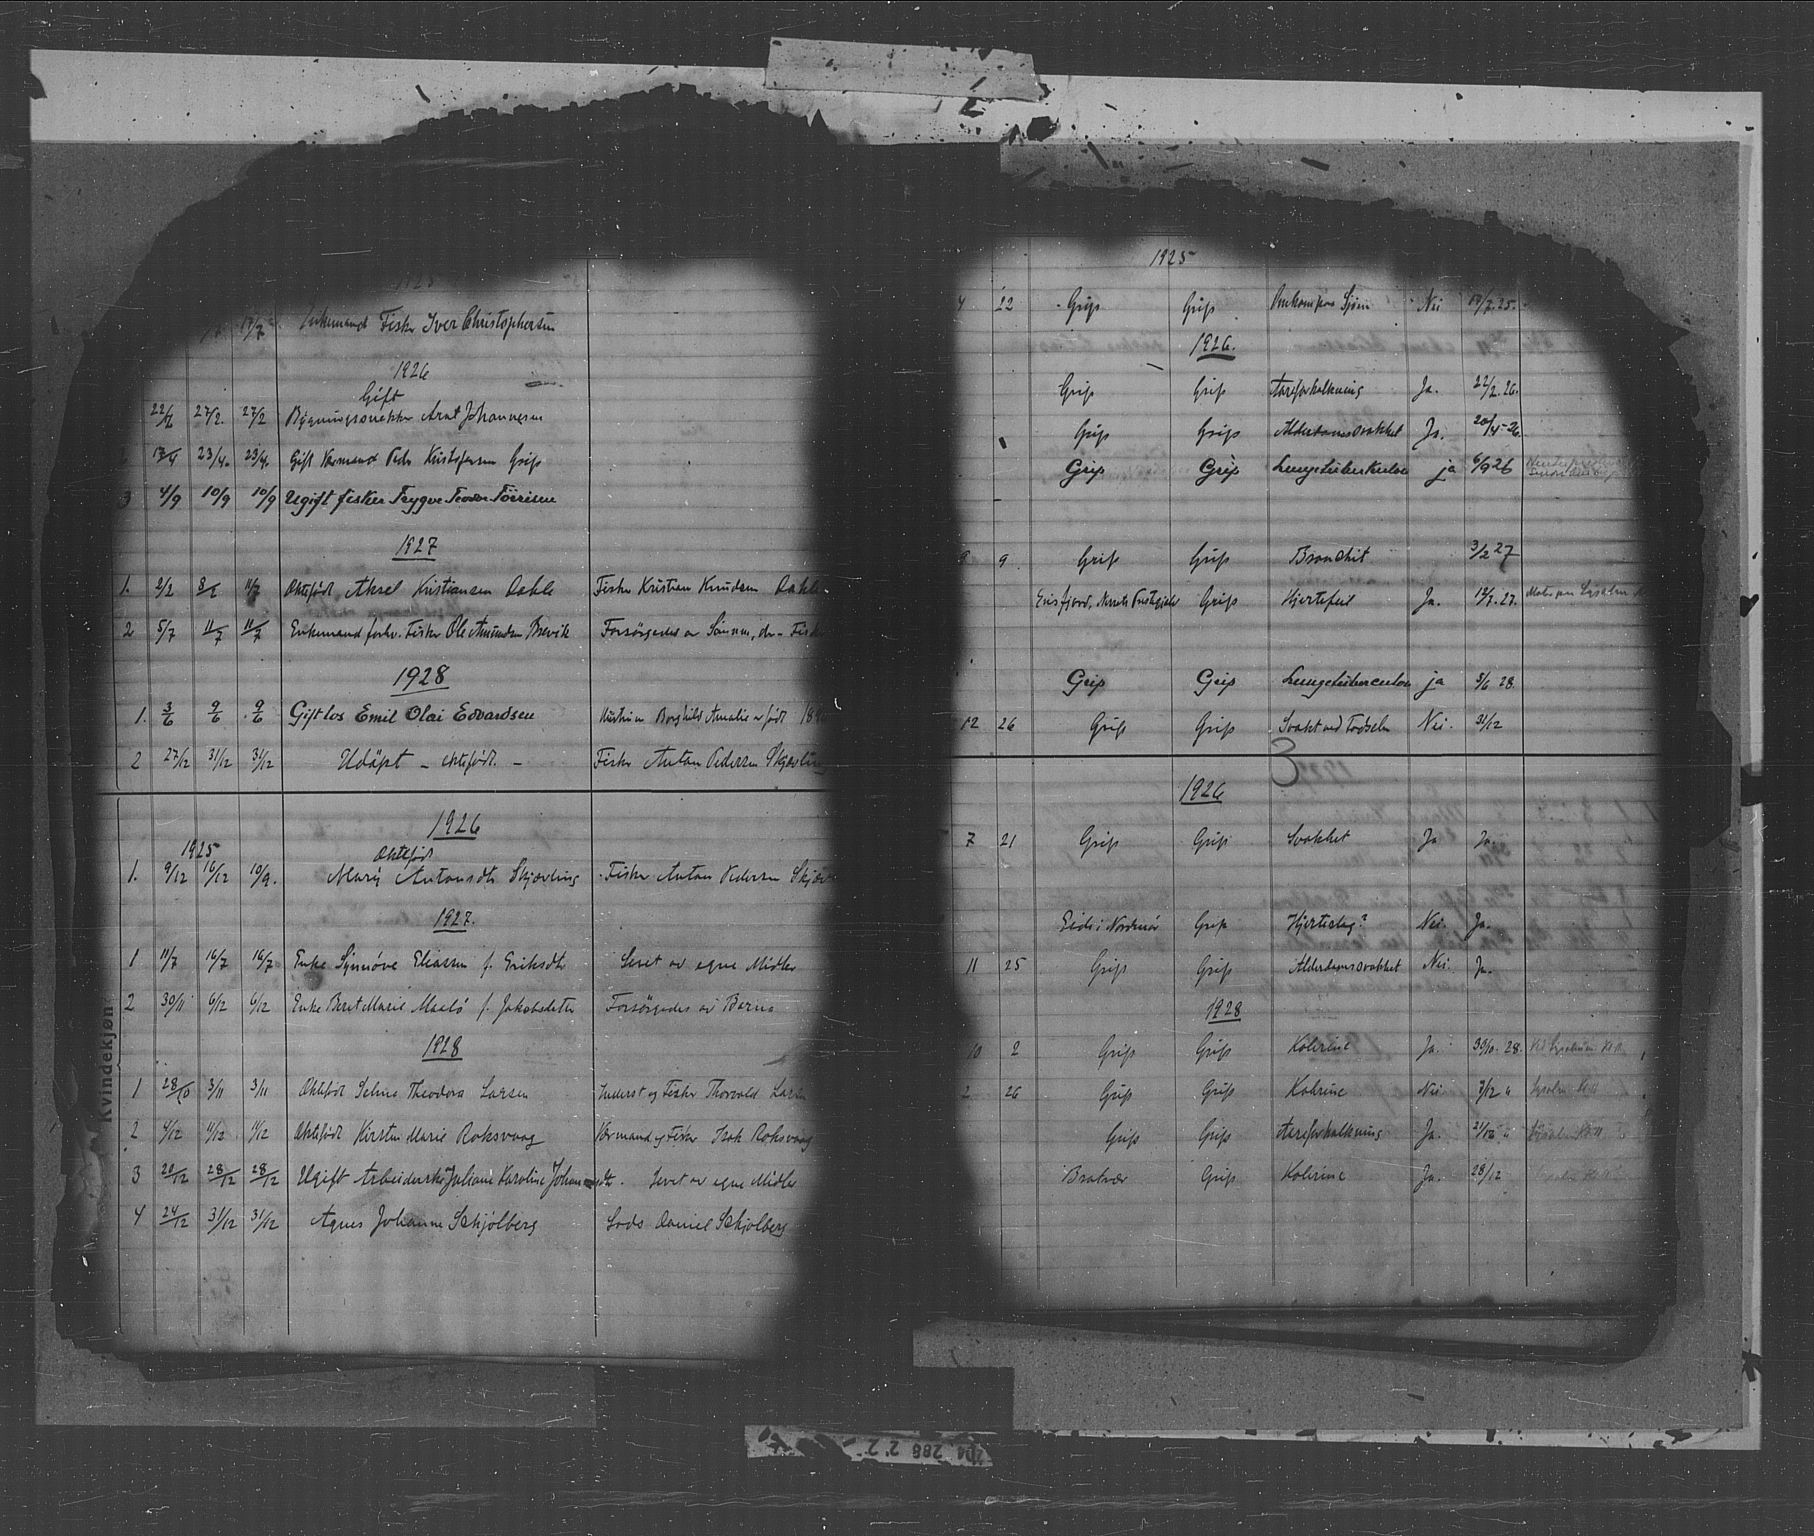 1925
17/7 Enkemand Fisker Iver Christophersen
1926
Gift
22/2 27/2. 27/2 Bygningssnekker Arnt Johannesen
23/4. 23/4. Gift Vormand Peder Kristofersen Grip
3 4/9 10/9 10/9 Ugift fisker Trygve Teodor Törrisen
1927
1. 2/2 Ektefödt Aksel Kristiansen Dahle Fisker Kristian Knudsen Dahle
2 5/7 11/7 11/7 Enkemand forhv. Fisker Ole Amundsen Brevik Forsörgedes av Sönnen, do - Fisker
1928
1. 3/6 9/6 9/6 Gift los Emil Olai Edvardsen Hustruen Borghild Amalie er född 18
2 27/12 31/12 31/12 Udöpt - ektefödt. - Fisker Anton Pedersen Skjævling
1926
1925
Ektefödt
1. 9/12 16/12 10/9. Marij Antonsdtr Skjævling - Fisker Anton Pedersen Skjæv
1927.
1 11/7 16/7 16/7 Enke Synnöve Eliassen f. Eriksdtr Levet av egne Midler
2 30/11 6/12 6/12 Enke Beret Marie Maalö f. Jakobsdatter Forsörgedes av Barna
1928
1 28/10 3/11 3/11 Ektefödt Selma Theodora Larsen Inderst og Fisker Thorvald Larsen
2 4/12 11/12 11/12 Ektefödt Kirsten Marie Roksvaag Vormand og Fisker Isak Roksvaag
3 20/12 28/12 28/12 Ugift Arbeiderske Juliane Karoline Johannesdtr. Levet av egne Midler
4 24/12 31/12 31/12 Agnes Johanne Schjölberg Lods Daniel Schjolberg
Kvindekjøn.
1925
4 22 Grip Grip Omkom paa Sjöen Nei 17/7.25.
1926.
Grip Grip Aareforkalkning Ja. 22/2.26.
Grip Grip Alderdomssvakhet Ja. 20/4-26.
Grip Grip Lungetuberkulose ja 6/9 26
9 Grip Grip Bronchit 3/2 27
Grip Hjertefeil Ja. 12/7.27.
Grip Grip Lungetuberculose ja 5/6 28.
12 26 Grip Grip Svakt ved Födselen Nei. 31/12
3
1926
7 21 Grip Grip Svakhet Ja Ja.
Eide i Nordmör Grip Hjerteslag? Nei. Ja.
11 25 Grip Grip Alderdomssvakhet Nei. Ja.
1928
10 2 Grip Grip Kolerine Ja. 30/10. 28.
2 26 Grip Grip Kolerine Nei 7/12 "
Grip Grip Aareforkalkning Ja. 21/12 "
Bratvær Grip Kolerine Ja. 28/12
288 2 2